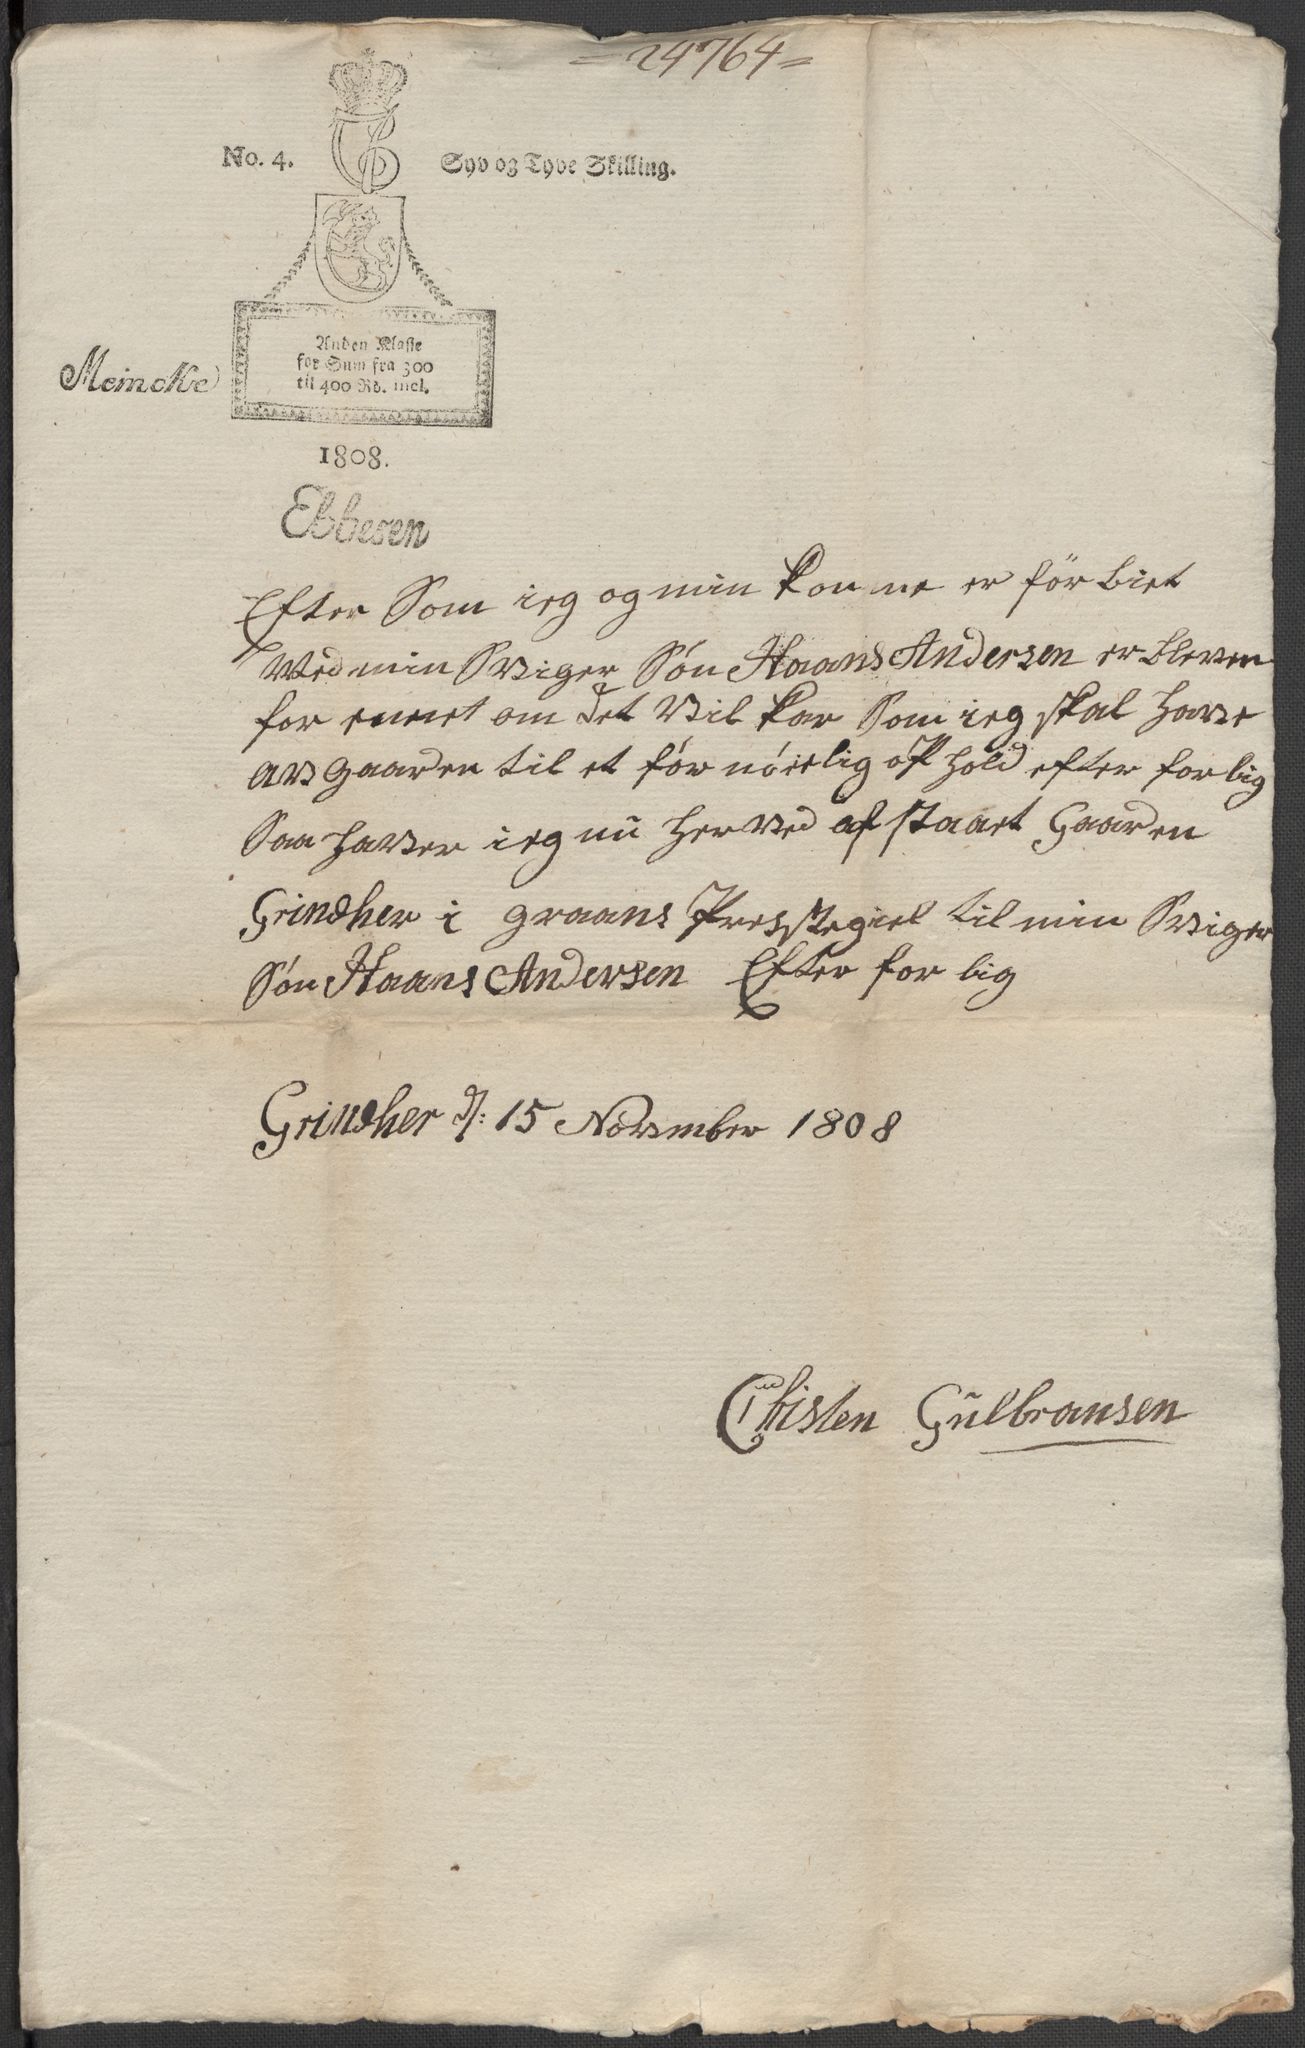 = 24764 =
No. 4. Syv og Tyve Skilling.
Anden Klasse
for Sum fra 300
til 400 Rd. incl.
Meincke
1808.
Ebbesen
Efter Som ieg og min konne er för biet
Med min Sviger Søn Haans Andersen er bleven
for enent om det Vil kar Som ieg skal have
av gaarden til et før nøielig op hold efter for lig
Saa haver ieg nü her ved af staaet Gaarden
Grindher i graans Presstegiel til min Sviger
Søn Haans Andersen Efter for lig
Grindher d: 15 November 1808
Christen Gülbransen